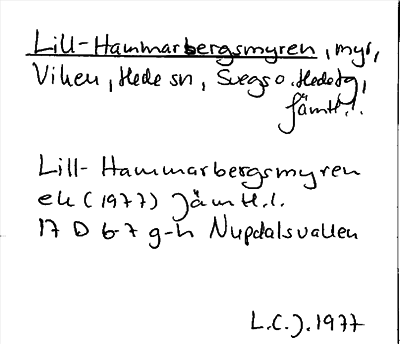 Lill-Hammarbergsmyren, myr,
Viken, Hede sn, Svegs o. Hede tg,
Jämtl.l.
Lill-Hammarbergsmyren
ek (1977) Jämtl.l.
17 D 6-7 g-h Nupdalsvallen
L.C.J. 1977